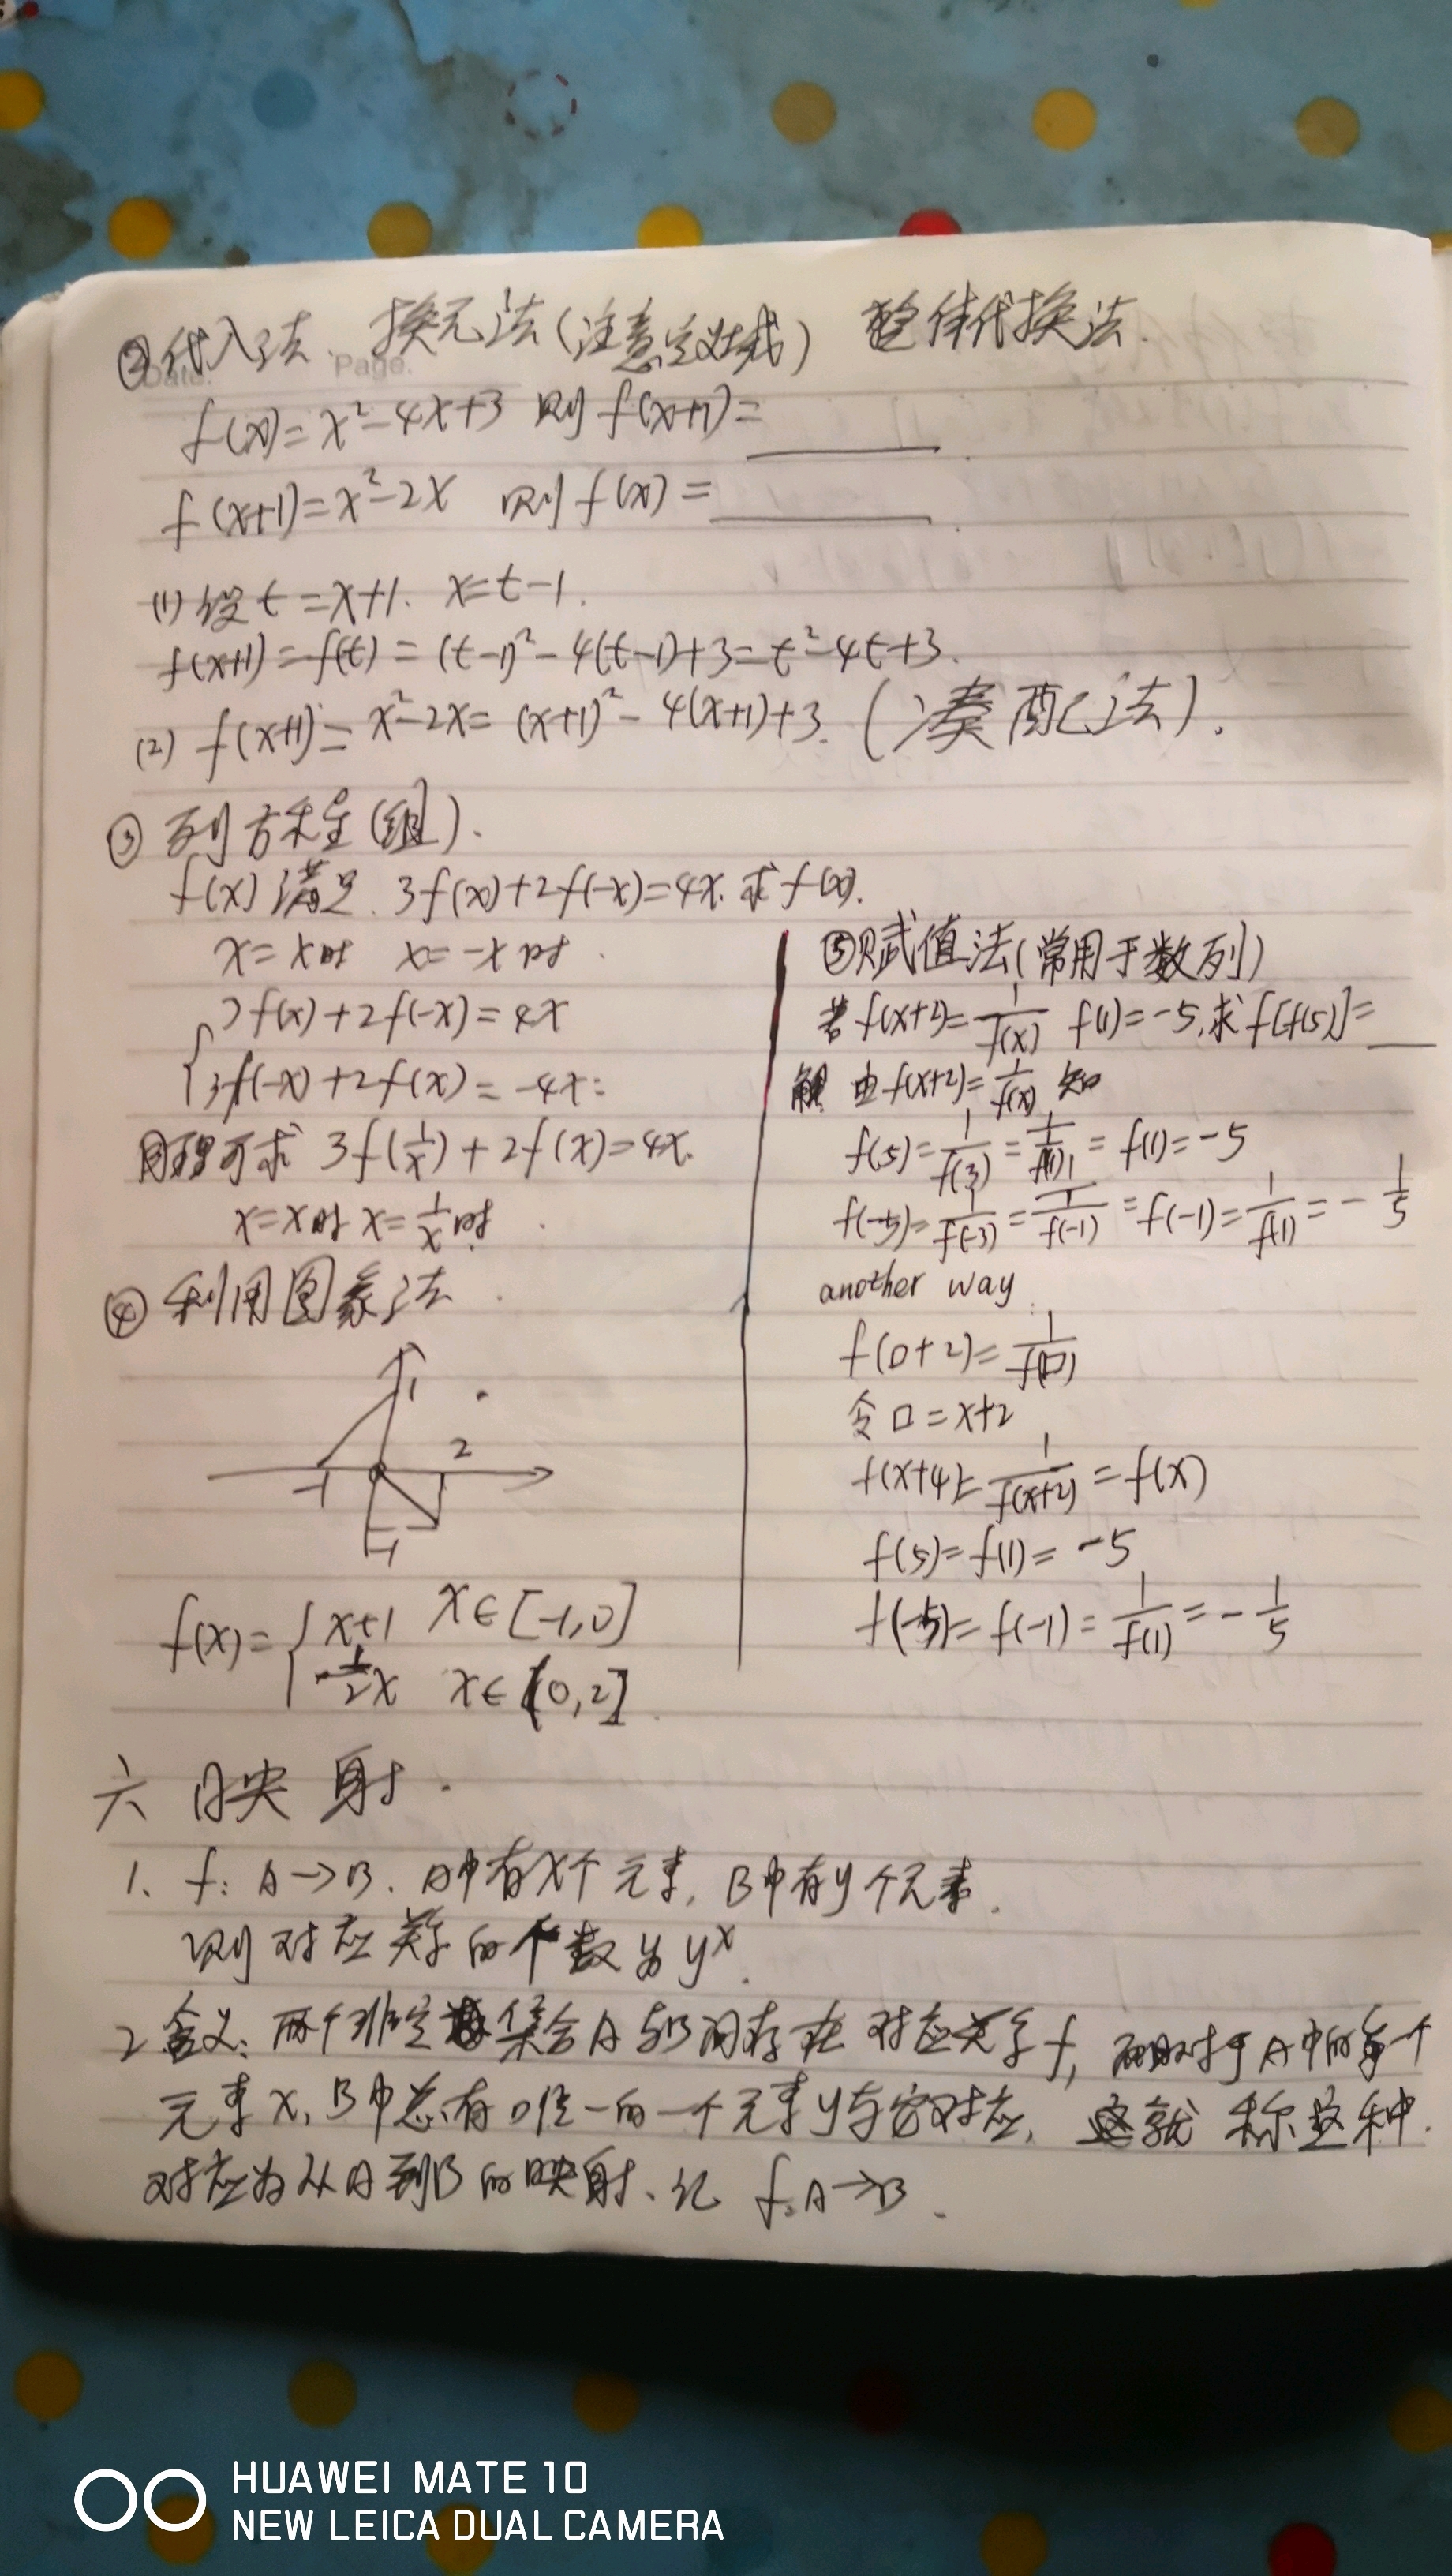 ②代入法 换元法(注意定义域) 整体代换法.
Date. Page.
f(x)=x²-4x+3 则f(x+1)=______.
f(x+1)=x²-2x 则f(x)=______.
(1)设t=x+1. x=t-1.
f(x+1)=f(t)=(t-1)²-4(t-1)+3=t²-4t+3.
(2) f(x+1)=x²-2x=(x+1)²-4(x+1)+3. (凑配法).
③ 列方程(组).
f(x)满足. 3f(x)+2f(-x)=4x. 求f(x).
x=x时 x=-x时.
3f(x)+2f(-x)=4x
3f(-x)+2f(x)=-4x
同理可求 3f(1/x)+2f(x)=4x.
x=x时 x=1/x时.
④ 利用图象法
1
-1 2
-1
f(x)={x+1 x∈[-1,0]
-1/2x x∈(0,2].
⑤赋值法(常用于数列)
若f(x+2)=1/f(x) f(1)=-5,求f[f(5)]=___
解 由f(x+2)=1/f(x) 知
f(5)=1/f(3)=1/(1/f(1))=f(1)=-5
f(-5)=1/f(-3)=1/(1/f(-1))=f(-1)=1/f(1)=-1/5
another way
f(□+2)=1/f(□)
令□=x+2
f(x+4)=1/f(x+2)=f(x)
f(5)=f(1)=-5
f(-5)=f(-1)=1/f(1)=-1/5
六 映射.
1、f: A→B. A中有x个元素, B中有y个元素.
则对应关系的个数为y^x.
2 含义: 两个非空集合A与B间存在对应关系f, 而且对于A中的每一个
元素x, B中总有唯一的一个元素y与它对应, 这就称这种.
对应为从A到B的映射、记 f:A→B.
HUAWEI MATE 10
NEW LEICA DUAL CAMERA